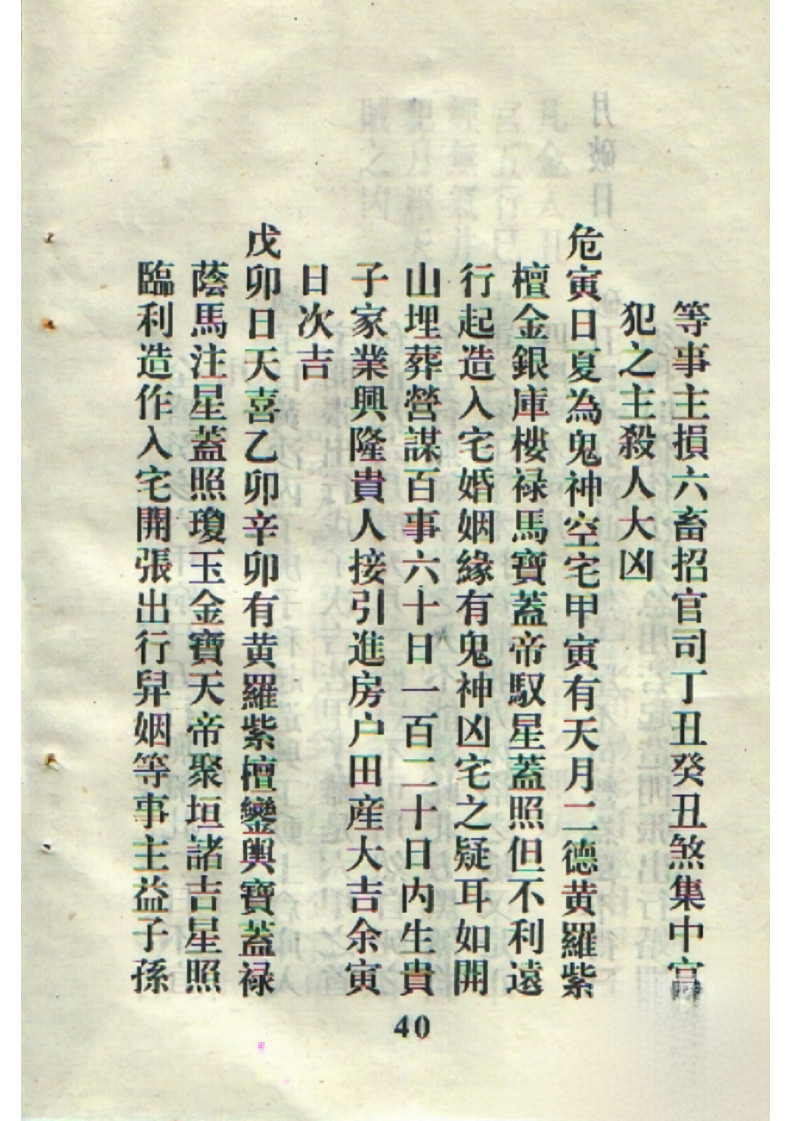 等事主損六畜招官司丁丑癸丑煞集中宫
犯之主殺人大凶
危寅日夏為鬼神空宅甲寅有天月二德黄羅紫
檀金銀庫樓禄馬寶蓋帝馭星蓋照但不利遠
行起造入宅婚姻緣有鬼神凶宅之疑耳如開
山埋葬營謀百事六十日一百二十日内生貴
子家業興隆貴人接引進房户田産大吉余寅
日次吉
戊卯日天喜乙卯辛卯有黄羅紫檀鑾輿寶蓋禄
蔭馬注星蓋照瓊玉金寶天帝聚垣諸吉星照
臨利造作入宅開張出行舁姻等事主益子孫
40